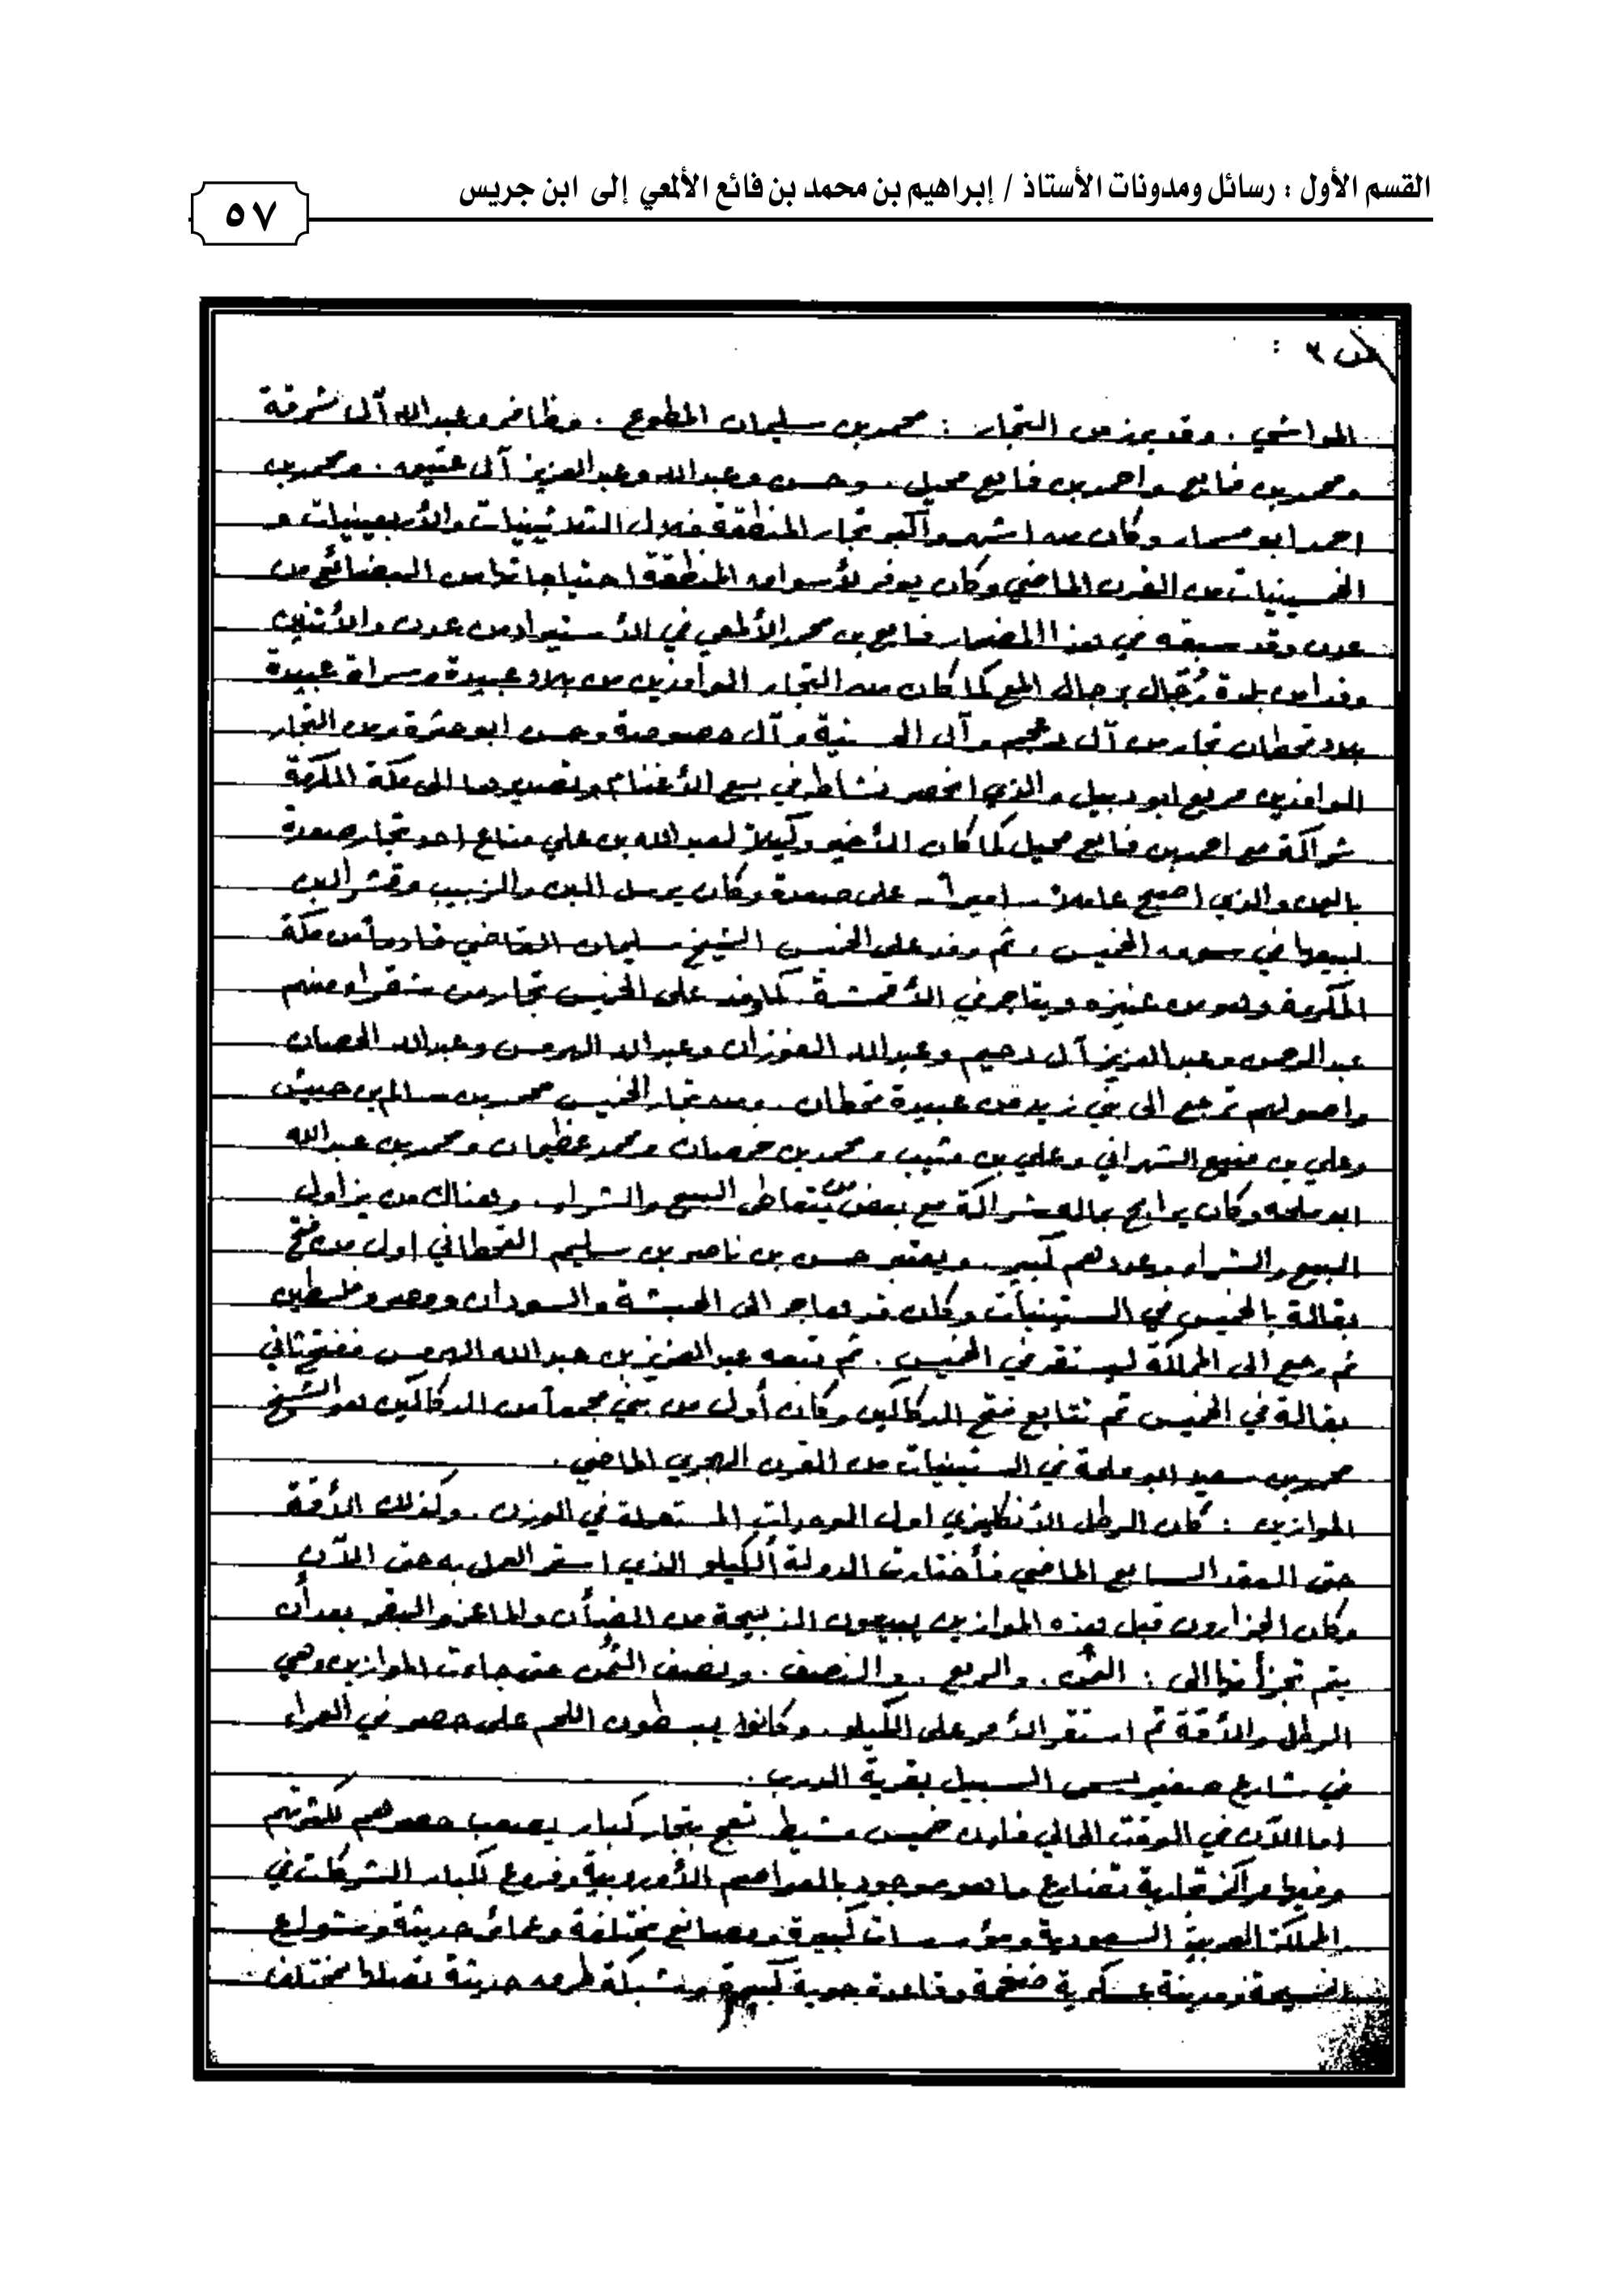 القسم الأول : رسائل ومدونات الأستاذ / إبراهيم بن محمد بن فائع الألمعي إلى ابن جريس
٥٧
ص ٣ :
المواشي . وقد برز من التجار : محمد بن سليمان المطوع . وظافر وعبدالله آل مشرفة
ومحمد بن فايع واحمد بن فايع محيل . وحسن وعبدالله وعبدالعزيز آل عتيق . ومحمد بن
احمد ابو مسمار وكان من اشهر وأكبر تجار المنطقة خلال الثلاثينيات والأربعينيات و
الخمسينيات من القرن الماضي وكان يوفر لأسواق المنطقة احتياجاتها من البضائع من
عدن وقد سبقه في هذا المضمار فايع بن محمد الألمعي في الأستيراد من عدن والأثنين
وفدا من بلدة رُجَال برجال المع كما كان من التجار الوافدين من بلاد عبيدة وسراة عبيدة
بلاد قحطان تجار من آل وآل وآل وحسن ابو ومن التجار
الوافدين مريع ابو دبيل والذي انحصر نشاطه في بيع الأغنام وتصديرها الى مكة المكرمة
شراكة مع احمد بن فايع محيل كما كان الأخير وكيلاً لعبدالله بن علي مناع احد تجار صعدة
باليمن والذي اصبح عاملاً - اميراً - على صعدة وكان يرسل البن والزبيب وقشر البن
لبيعها في سوق الخميس ، ثم وفد على الخميس الشيخ سليمان القاضي قادماً من مكة
المكرمة وهو من عنيزه ويتاجر في الأقمشة . كما وفد على الخميس تجار من شقراء منهم
عبدالرحمن وعبدالعزيز آل دحيم وعبدالله الفوزان وعبدالله الهرمس وعبدالله الحصان
واصولهم ترجع الى بني زيد من عبيدة قحطان . ومن تجار الخميس محمد بن سالم بن حبيش
وعلي بن منيع الشهراني وعلي بن مشيب ومحمد بن خرصان ومحمد عظيمان ومحمد بن عبدالله
ابو ملحه وكان يرابح بماله شراكة مع بعض من يتعاطى البيع والشراء . وهناك من يزاول
البيع والشراء وعددهم كبير . ويعتبر حسن بن ناصر بن سليم القحطاني اول من فتح
بقالة بالخميس في الستينيات وكان قد هاجر الى الحبشة والسودان ومصر وفلسطين
ثم رجع الى المملكة ليستقر في الخميس . ثم تبعه عبدالعزيز بن عبدالله الهرمس ففتح ثاني
بقالة في الخميس ثم تتابع فتح الدكاكين وكان أول من بني مجمعاً من الدكاكين هو الشيخ
محمد بن سعيد ابو ملحة في الستينيات من القرن الهجري الماضي .
الموازين : كان الرطل الأنكليزي اول الوحدات المستعملة في الوزن . وكذلك الأقة
حتى العقد السابع الماضي فأختارت الدولة ألكيلو الذي استمر العمل به حتى الآن
وكان الجزارون قبل هذه الموازين يبيعون الذبيحة من الضأن والماعز والبقر بعد أن
يتم تجزأتها الى : الثمن . والربع . والنصف . ونصف الثُمن حتى جاءت الموازين وهي
الرطل والأقة ثم استقر الأمر على الكيلو . وكانوا يبسطون اللحم على حصر في العراء
في شارع صغير يسمى السبيل بقرية الدرب .
اما الآن في الوقت الحالي فأن خميس مشيط تعج بتجار كبار يصعب حصرهم لكثرتهم
وفيها مراكز تجارية تضارع ما هو موجود بالعواصم الأوروبية وفروع لكبار الشركات في
المملكة العربية السعودية ومؤسسات كبيرة ومصانع مختلفة وعمائر حديثة وشوارع
فسيحة ومدينة عسكرية ضخمة وقاعدة جوية كبيرة وشبكة طرق حديثة تصلها بمختلف